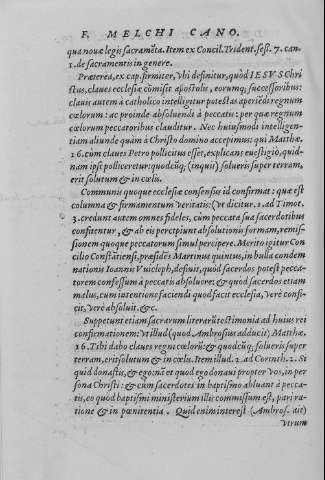 F. MELCHI CANO.
qua nouæ legis sacramẽta. Item ex Concil. Trident. ses. 7. can.
1. de sacramentis in genere.
Præterea, ex cap. firmiter, vbi definitur, quòd IESVS Chri
stus, claues ecclesiæ cõmisit apostolis, eorumq; successoribus:
clauis autem à catholico intelligitur potestas aperiẽdi regnum
cœlorum: ac proinde absoluendi à peccatis: per quæ regnum
cœlorum peccatoribus clauditur. Nec huiusmodi intelligen-
tiam aliunde quàm à Christo domino accepimus: qui Matthæ.
16. cùm claues Petro pollicitus esset, explicans euestigiò, quid-
nam ipse polliceretur: quodcũq; (inquit) solueris super terram,
erit solutum & in cœlis.
Communis quoque ecclesiæ consensus id confirmat: quæ est
columna & firmamentum veritatis: (vt dicitur. 1. ad Timot.
3. credunt autem omnes fideles, cùm peccata sua sacerdotibus
confitentur, & ab eis percipiunt absolutionis formam, remis-
sionem quoque peccatorum simul percipere. Meritò igitur Con
cilio Constãtiensi, præsidẽs Martinus quintus, in bulla condem
nationis Ioannis Vuicleph, definit, quòd sacerdos potest pecca-
torem confessum à peccatis absoluere: & quòd sacerdos etiam
malus, cum intentione faciendi quod facit ecclesia, verè confi-
cit, verè absoluit, &c.
Suppetunt etiam sacrarum literarũ testimonia ad huius rei
confirmationem: vt illud (quod Ambrosius adducit) Matthæ.
16. Tibi dabo claues regni cœlorũ: & quodcũq; solueris super
terram, erit solutum & in cœlis. Item illud. 2. ad Corinth. 2. Si
quid donastis, & ego: nã et quod ego donaui propter vos, in per
sona Christi: & cùm sacerdotes in baptismo abluant à pecca-
tis, eo quòd baptismi ministerium illis commissum est, pari ra-
tione & in pœnitentia. Quid enim interest (Ambros. ait)
vtrum